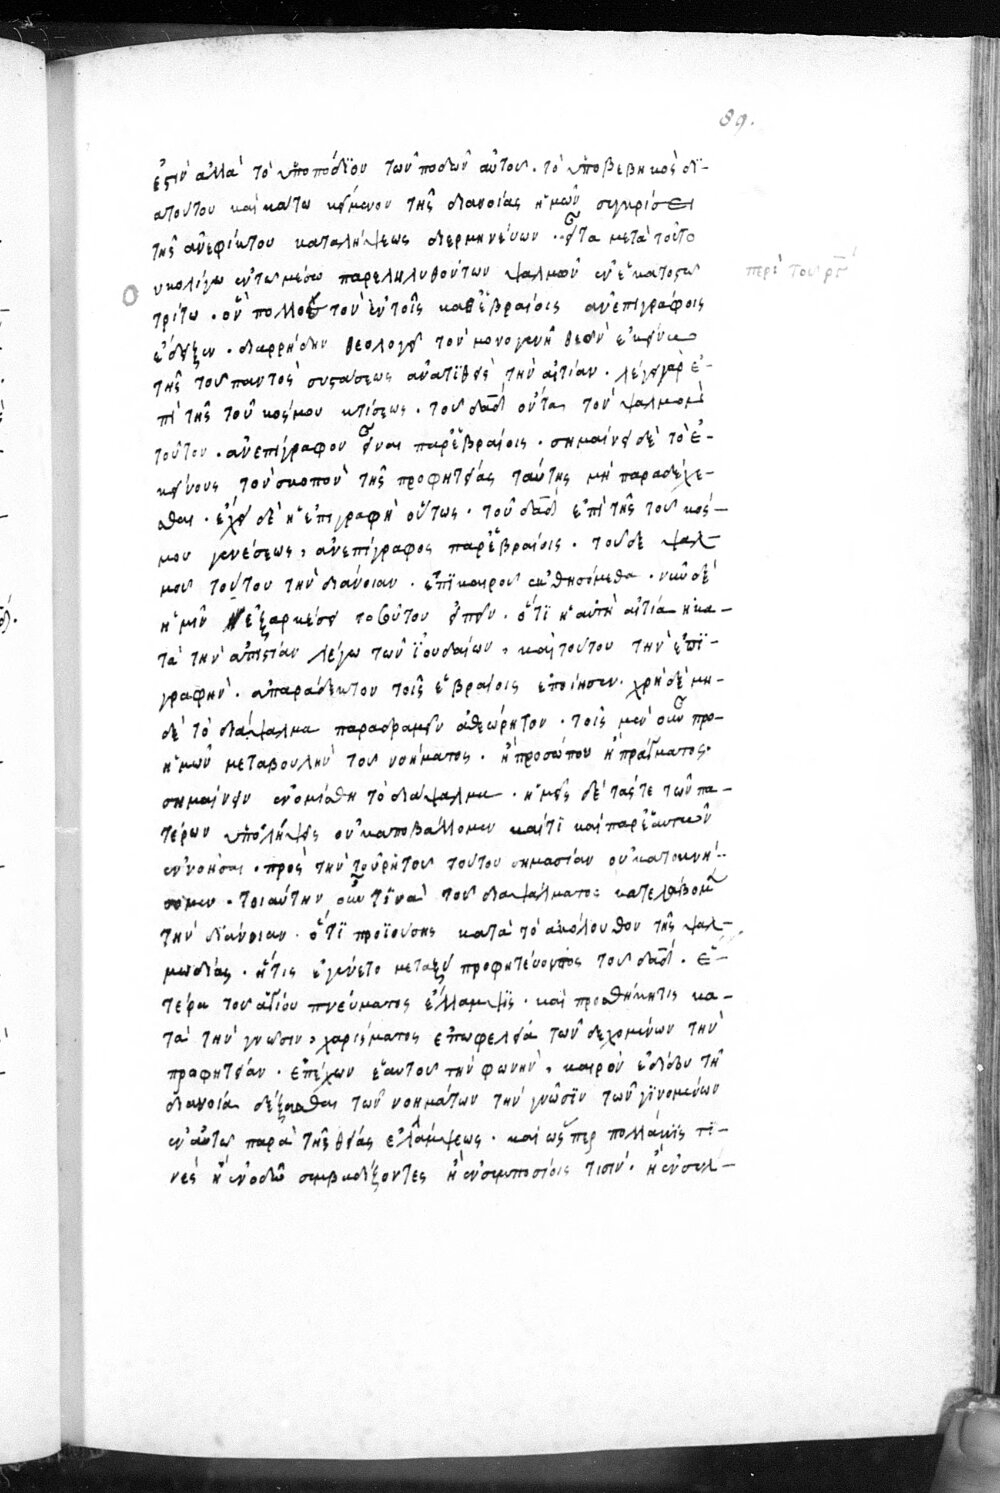 89.
ἐστὶν ἀλλὰ τὸ ὑποπόδϊον τῶν ποδῶν αὐτοῦ. τὸ ὑποβεβηκὸς δϊ-
ατούτου καὶ κάτω κείμενον τῆς διανοίας ἡμῶν συγκρίσει
τῆς ἀνεφίκτου καταλήψεως διερμηνεύων. εἶτα μετὰ τοῦτο
οὐκολίγω ἐντωμέσω παρεληλυθότων ψαλμῶν ἐνἑκατοστῶ
περὶ τοῦ ργ΄
τρίτω. ὃν πολλοῖς τὸν ἐντοῖς καθἑβραίοις ἀνεπιγράφοις
ἔδειξεν. διαρρήδην θεολογεῖ τὸν μονογενῆ θεὸν ἐκείνω
τῆς τοῦπαντὸς συστάσεως ἀνατϊθεὶς τὴν αἰτίαν. λέγει γὰρ ἐ-
πὶ τῆς τοῦ κόσμου κτίσεως. τοῦ δαδ ὄντα τὸν ψαλμὸν
τοῦτον. ἀνεπίγραφον εἶναι παρἑβραίοις. σημαίνει δὲ τὸ ἐ-
κείνους τὸν σκοπὸν τῆς προφητείας ταύτης μὴ παραδέχε-
σθαι. ἔχει δὲ ἡ ἐπιγραφὴ οὕτως. τοῦ δαδ ἐπὶ τῆς τοῦ κόσ-
μου γενέσεως, ἀνεπίγραφος παρἑβραίοις. τοῦδε ψαλ-
μοῦ τούτου τὴν διάνοιαν. ἐπϊκαίρου ἐκθησόμεθα. νῦν δὲ
ἡμῖν ἐξαρκέσει τοσοῦτον εἰπεῖν. ὅτϊ ἡ αὐτὴ αἰτία ἡ κα-
τὰ τὴν ἀπιστίαν λέγω τῶν ἰουδαίων, καὶ τούτου τὴν ἐπϊ-
γραφὴν. ἀπαράδεκτον τοῖς ἑβραίοις ἐποίησεν. χρὴ δὲ μη-
δὲ τὸ διάψαλμα παραδραμεῖν ἀθεώρητον. τοῖς μὲν οὖν προ-
ἡμῶν μεταβουλὴν τοῦ νοήματος. ἢ προσώπου ἢ πράγματος.
σημαίνειν ἐνομίσθη τὸ διάψαλμα. ἡμεῖς δὲ τάς τε τῶν πα-
τέρων ὑπολήψεις οὐκαποβάλλομεν καίτϊ καὶ παρἑαυτῶν
ἐννοῆσαι. πρὸς τὴν τοῦρητοῦ τούτου σημασίαν οὐκατοκνή-
σομεν. τοιαύτην οὖν τϊνὰ τοῦ διαψάλματος κατελάβομεν
τὴν διάνοιαν. ὅτϊ προϊούσης κατὰ τὸ ἀκόλουθον τῆς ψαλ-
μωδίας. ἥτις ἐγένετο μεταξὺ προφητεύοντος τοῦ δαδ. ἑ-
τέρα τοῦ ἁγίου πνεύματος ἔλλαμψϊς. καὶ προσθήκητις κα-
τὰ τὴν γνῶσιν, χαρίσματος ἐπωφελεία τῶν δεχομένων τὴν
προφητείαν. ἐπέχων ἑαυτοῦ τὴν φωνὴν, καιρὸν ἐδίδου τῆ
διανοία δέξασθαι τῶν νοημάτων τὴν γνῶσϊν τῶν γϊνομένων
ἐν αὐτῶ παρὰ τῆς θείας ἐλλάμψεως. καὶ ὥσπερ πολλάκϊς τϊ-
νὲς ἢ ἐνοδῶ συμβαδίζοντες ἢ ἐνσυμποσίοις τισὶν. ἢ ἐνσυλ-